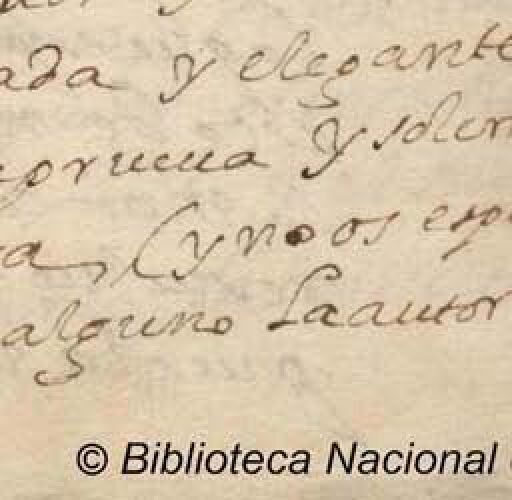 ada y elegante
prueua y solen
ra, (y no os espe
alguno La autor
© Biblioteca Nacional